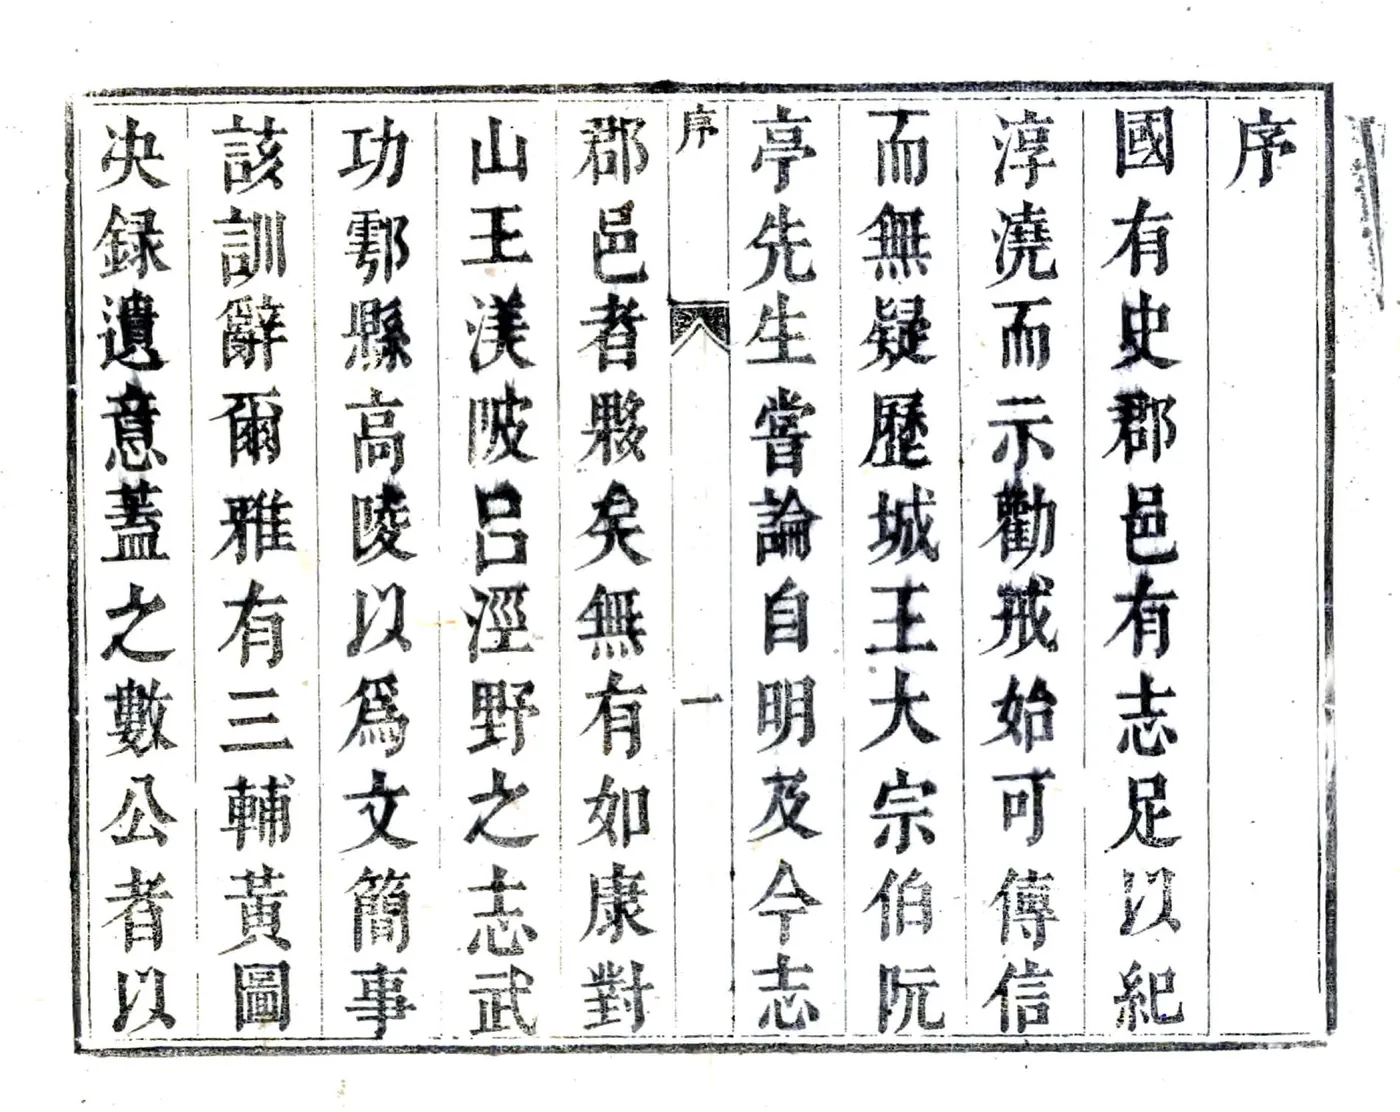 序
國有史郡邑有志足以紀
淳澆而示勸戒始可傳信
而無疑歷城王大宗伯阮
亭先生嘗論自明及今志
序
一
郡邑者夥矣無有如康對
山王渼陂呂涇野之志武
功鄠縣高陵以為文簡事
該訓辭爾雅有三輔黃圖
决録遺意蓋之數公者以